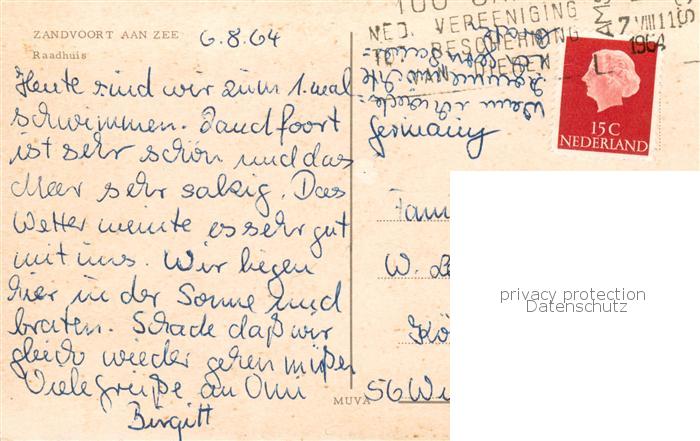 ZANDVOORT AAN ZEE
Raadhuis
6.8.64
Heute sind wir zum 1. mal
schwimmen. Zandfoort
ist sehr schön und das
Meer sehr salzig. Das
Wetter meinte es sehr gut
mit uns. Wir liegen
hier in der Sonne und
braten. Schade daß wir
gleich wieder gehen müßen
Viele Grüße an Omi
Birgitt
MUVA
100
NED. VEREENIGING
BESCHERMING
VAN DIEREN
7 VIII 11
1964
15 C
NEDERLAND
Germany
Fam
W. Le
Kö
56 Wu
privacy protection
Datenschutz